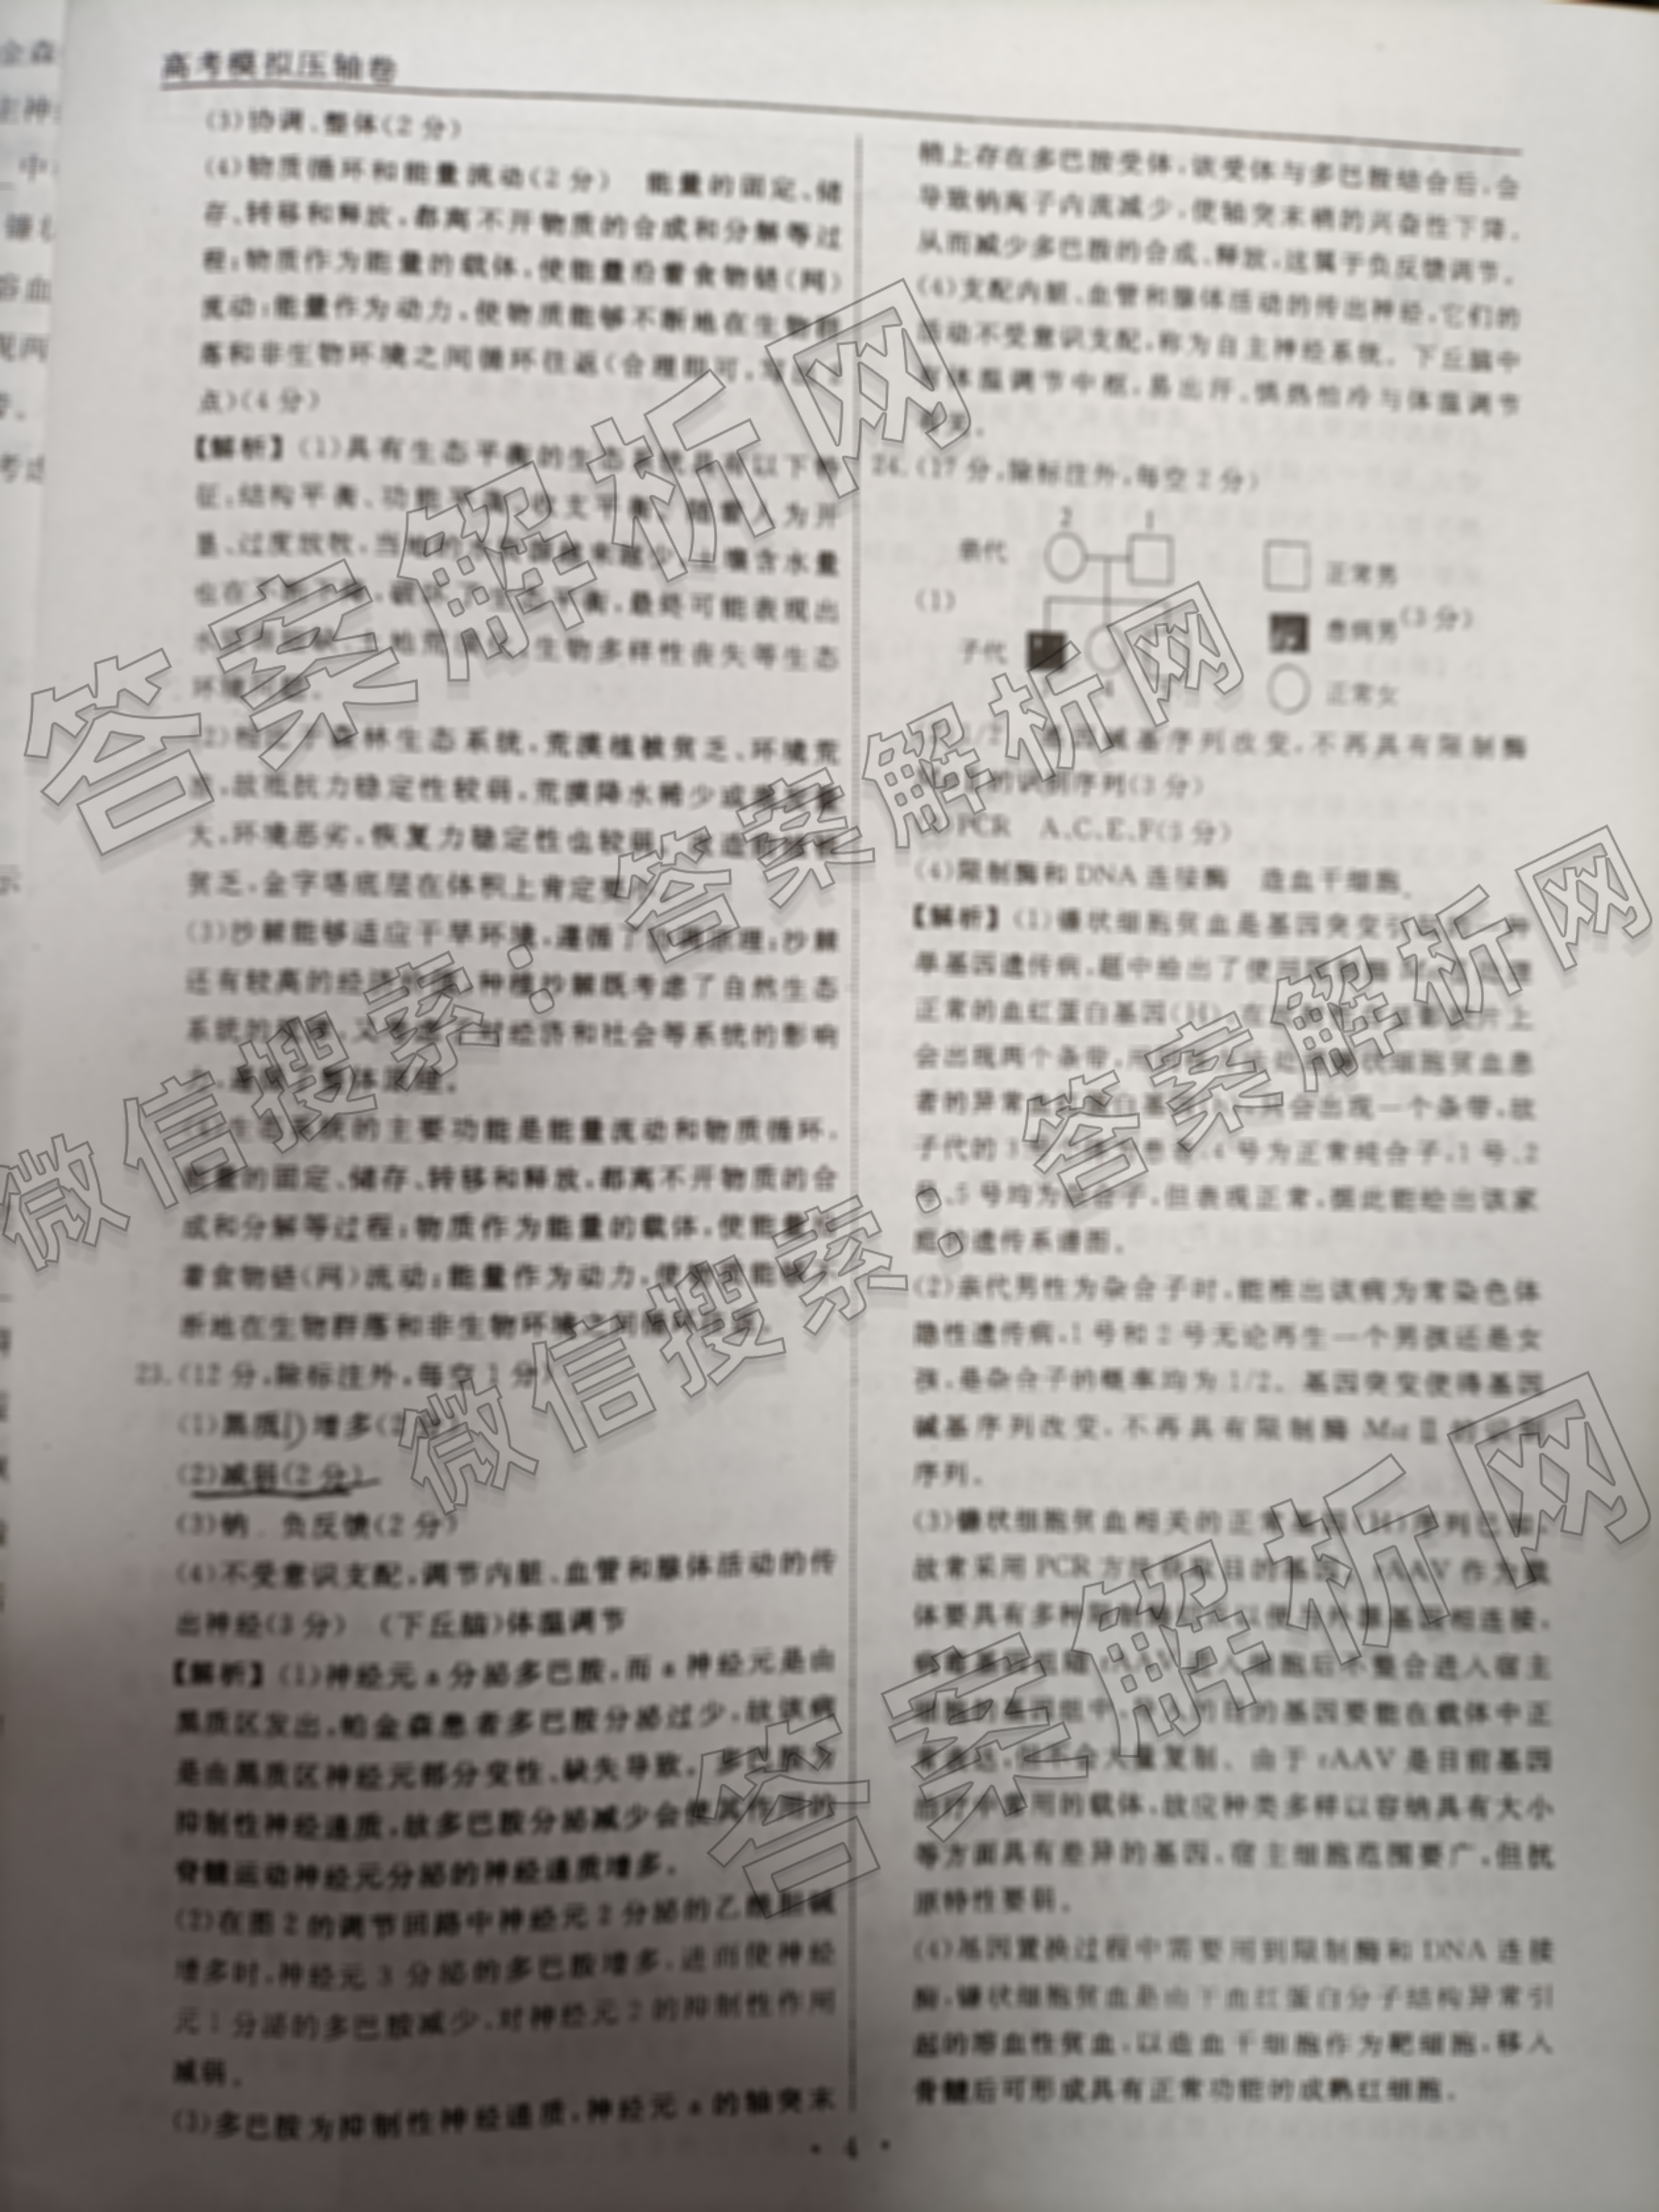 高考模拟压轴卷
(3)协调、整体(2分)
(4)物质循环和能量流动(2分) 能量的固定、储
存、转移和释放,都离不开物质的合成和分解等过
程;物质作为能量的载体,使能量沿着食物链(网)
流动;能量作为动力,使物质能够不断地在生物群
落和非生物环境之间循环往返(合理即可,
点)(4分)
【解析】(1)具有生态平衡的生态系统具有以下特
征:结构平衡、功能平衡、收支平衡。随着人为开
垦、过度放牧,当地的 越来越少,土壤含水量
也在不断下降,破坏了生态平衡,最终可能表现出
生物多样性丧失等生态
环境问题。
(2)相比于森林生态系统,荒漠植被贫乏、环境荒
,故抵抗力稳定性较弱,荒漠降水稀少或蒸发量
大,环境恶劣,恢复力稳定性也较弱。
贫乏,金字塔底层在体积上肯定要小
(3)沙棘能够适应干旱环境,遵循了协调原理;沙棘
还有较高的经济价值,种植沙棘既考虑了自然生态
系统的规律,又考虑了对经济和社会等系统的影响
力,遵循了整体原理。
(4)生态系统的主要功能是能量流动和物质循环,
能量的固定、储存、转移和释放,都离不开物质的合
成和分解等过程;物质作为能量的载体,使能量沿
着食物链(网)流动;能量作为动力,使物质能够不
断地在生物群落和非生物环境之间循环往返。
23.(12分,除标注外,每空1分)
(1)黑质 增多(2分)
(2)减弱(2分)
(3)钠 负反馈(2分)
(4)不受意识支配,调节内脏、血管和腺体活动的传
出神经(3分) (下丘脑)体温调节
【解析】(1)神经元a分泌多巴胺,而a神经元是由
黑质区发出,帕金森患者多巴胺分泌过少,故该病
是由黑质区神经元部分变性、缺失导致。多巴胺为
抑制性神经递质,故多巴胺分泌减少会使其作用的
脊髓运动神经元分泌的神经递质增多。
(2)在图2的调节回路中神经元2分泌的乙酰胆碱
增多时,神经元3分泌的多巴胺增多,进而使神经
元1分泌的多巴胺减少,对神经元2的抑制性作用
减弱。
(3)多巴胺为抑制性神经递质,神经元a的轴突末
梢上存在多巴胺受体,该受体与多巴胺结合后,会
导致钠离子内流减少,使轴突末梢的兴奋性下降,
从而减少多巴胺的合成、释放,这属于负反馈调节。
(4)支配内脏、血管和腺体活动的传出神经,它们的
活动不受意识支配,称为自主神经系统。下丘脑中
有体温调节中枢,易出汗、惧热怕冷与体温调节
有关。
24.(17分,除标注外,每空2分)
2 1
亲代
正常男
(1)
患病男 (3分)
子代
4
正常女
(2)1/2 基因碱基序列改变,不再具有限制酶
的识别序列(3分)
(3)PCR A、C、E、F(3分)
(4)限制酶和DNA连接酶 造血干细胞
【解析】(1)镰状细胞贫血是基因突变引起的一种
单基因遗传病,题中给出了使用限制酶 处理
正常的血红蛋白基因(H),在 片上
会出现两个条带,用 处理镰状细胞贫血患
者的异常血红蛋白基因 只会出现一个条带,故
子代的3号 患者,4号为正常纯合子,1号、2
号、5号均为杂合子,但表现正常,据此能绘出该家
庭的遗传系谱图。
(2)亲代男性为杂合子时,能推出该病为常染色体
隐性遗传病,1号和2号无论再生一个男孩还是女
孩,是杂合子的概率均为1/2。基因突变使得基因
碱基序列改变,不再具有限制酶MstⅡ的识别
序列。
(3)镰状细胞贫血相关的正常基因(H)序列已知,
故常采用PCR方法获取目的基因。rAAV作为载
体要具有多种限制酶切点以便与外源基因相连接,
病毒基因组随rAAV进入细胞后不整合进入宿主
细胞的基因组中,导入的目的基因要能在载体中正
常表达,但不会大量复制。由于rAAV是目前基因
治疗中要用的载体,故应种类多样以容纳具有大小
等方面具有差异的基因,宿主细胞范围要广,但抗
原特性要弱。
(4)基因置换过程中需要用到限制酶和DNA连接
酶,镰状细胞贫血是由于血红蛋白分子结构异常引
起的溶血性贫血,以造血干细胞作为靶细胞,移入
骨髓后可形成具有正常功能的成熟红细胞。
· 4 ·
答案解析网
微信搜索:答案解析网
微信搜索:答案解析网
答案解析网